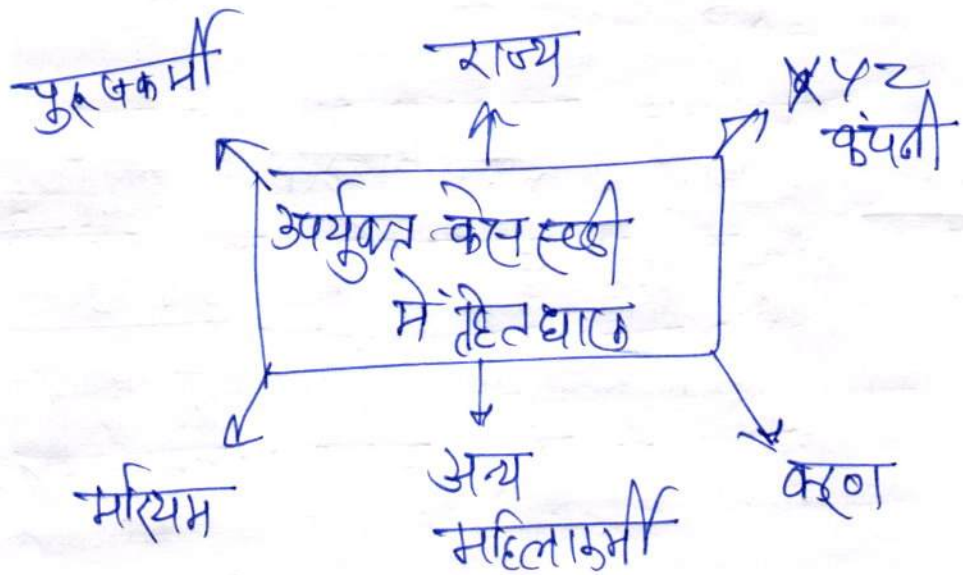 पुरुषकर्मी
राज्य
XYZ
कंपनी
उपर्युक्त केस स्टडी
में हितधारक
मरियम
अन्य
महिलाकर्मी
करुण